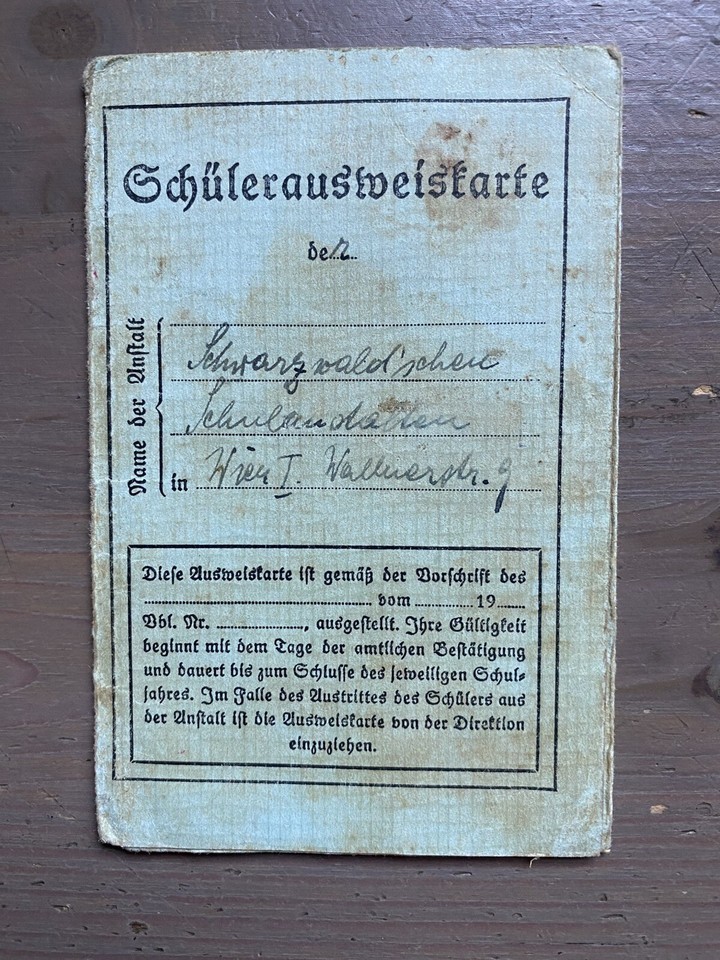 Schülerausweiskarte
der
Name der Anstalt
Schwarzwald'schen
Schulanstalten
in Wien I. Wallnerstr. 9
Diese Ausweiskarte ist gemäß der Vorschrift des
vom 19
Vbl. Nr. , ausgestellt. Ihre Gültigkeit
beginnt mit dem Tage der amtlichen Bestätigung
und dauert bis zum Schlusse des jeweiligen Schul-
jahres. Im Falle des Austrittes des Schülers aus
der Anstalt ist die Ausweiskarte von der Direktion
einzuziehen.